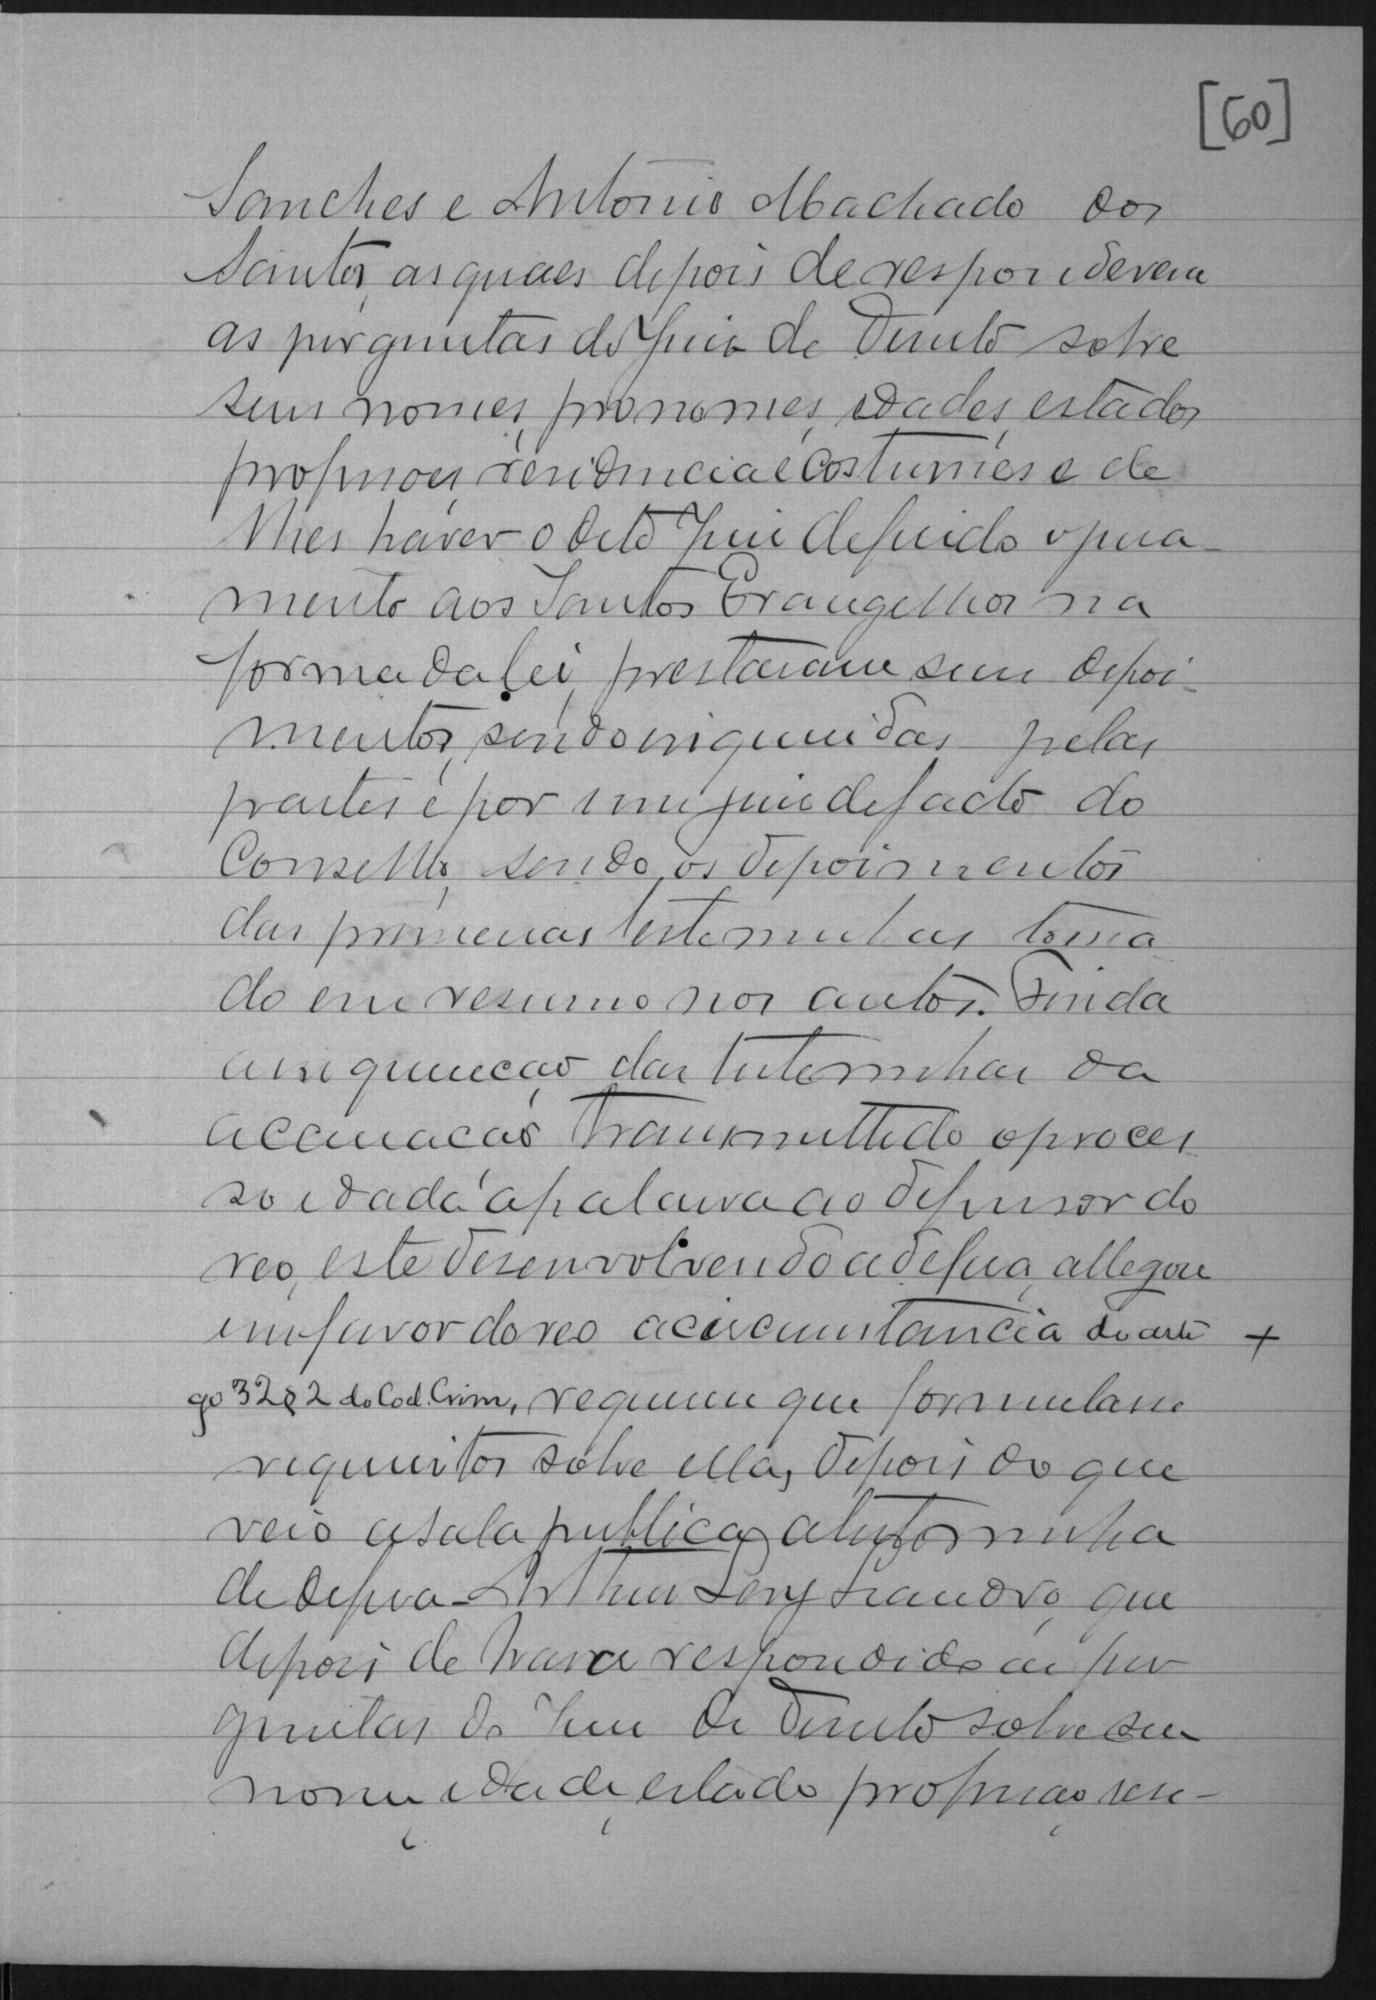 [60]
Sanches e Antonio Machado dos
Santos, as quaes depois de responderem
as perguntas do Juiz de Direito sobre
seus nomes, pronomes, idades, estados
profissoes, residencia e costumes e de
lhes haver o dito Juiz deferido o jura-
mento aos Santos Evangelhos na
forma da lei, prestaram seus depoi-
mentos, sendo inqueridas pelas
partes e por um juiz de facto do
Conselho, sendo os depoimentos
das primeiras testemunhas toma
do em resumo nos autos. Finda
a inquirição das testemunhas da
accusacão transmittido o proces
so e dada a palavra ao defensor do
reo, este desenvolvendo a defesa, allegou
em favor do reo a circumstancia do arti +
go 32 § 2 do Cod. Crim, requereu que formulasse
requisitos sobre ella, depois do que
veio a sala publica a testemunha
de defesa - Arthur Leny Leandro, que
depois de haver respondido as per
guntas do Juiz de Direito sobre seu
nome, idade, estado profissão resi-